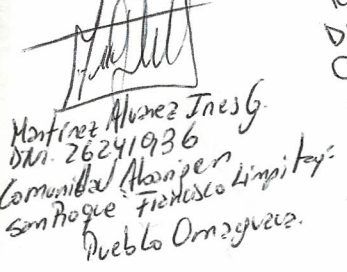 Martínez Alvarez Ines G.
DNI. 26241936
Comunidad Aborigen
San Roque Francisco Limpitay-
Pueblo Omaguaca.